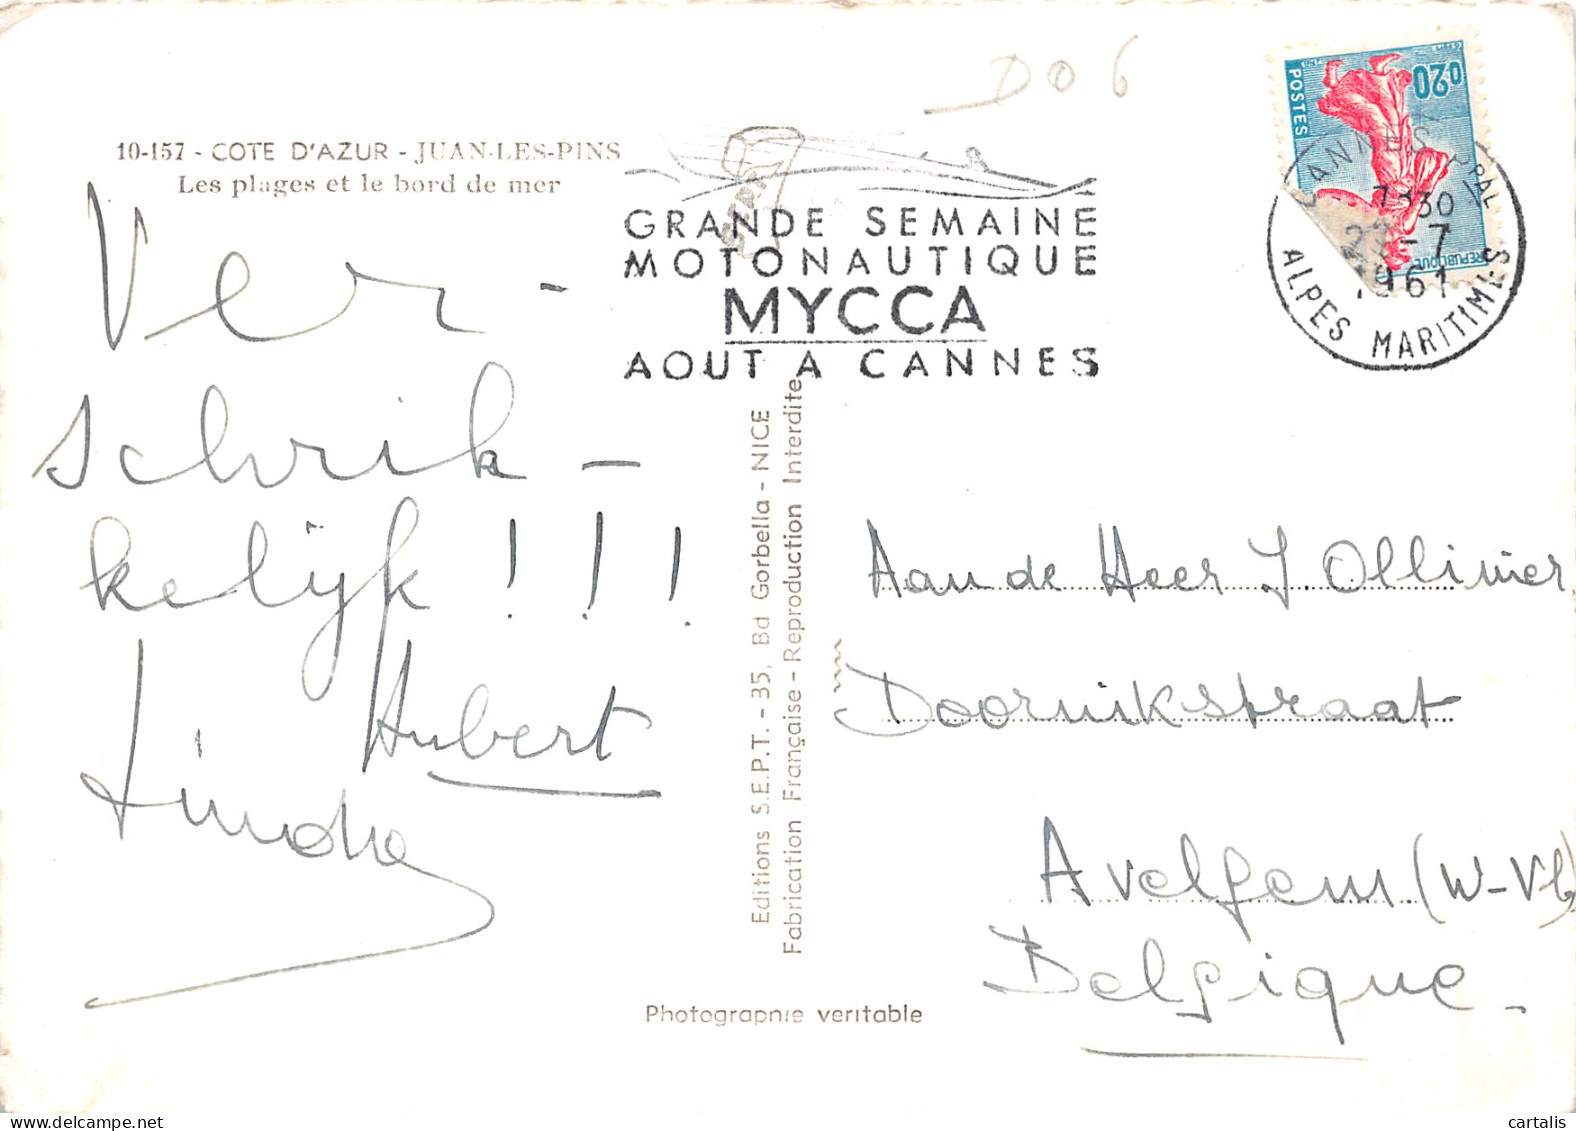 D06
10-157 - COTE D'AZUR - JUAN-LES-PINS
Les plages et le bord de mer
GRANDE SEMAINE
MOTONAUTIQUE
MYCCA
AOUT A CANNES
POSTES
0,20
REPUBLIQUE
CANNES PPAL
1830
-7
1961
ALPES MARITIMES
Ver-
schrik-
kelijk!!!
Hubert
Editions S.E.P.T. - 35, Bd Gorbella - NICE
Fabrication Française - Reproduction Interdite
Aan de Heer J. Ollivier
Doornikstraat
Avelgem (W-Vl)
Belgique.
Photographie veritable
cartalis